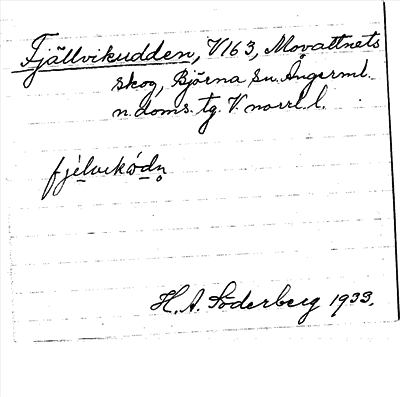 Fjällvikudden, V163, Movattnets
skog, Björna sn. Ångerml.
n. doms. tg. V. norrl. l.
fjélvikódn̥
H. A. Söderberg 1933.